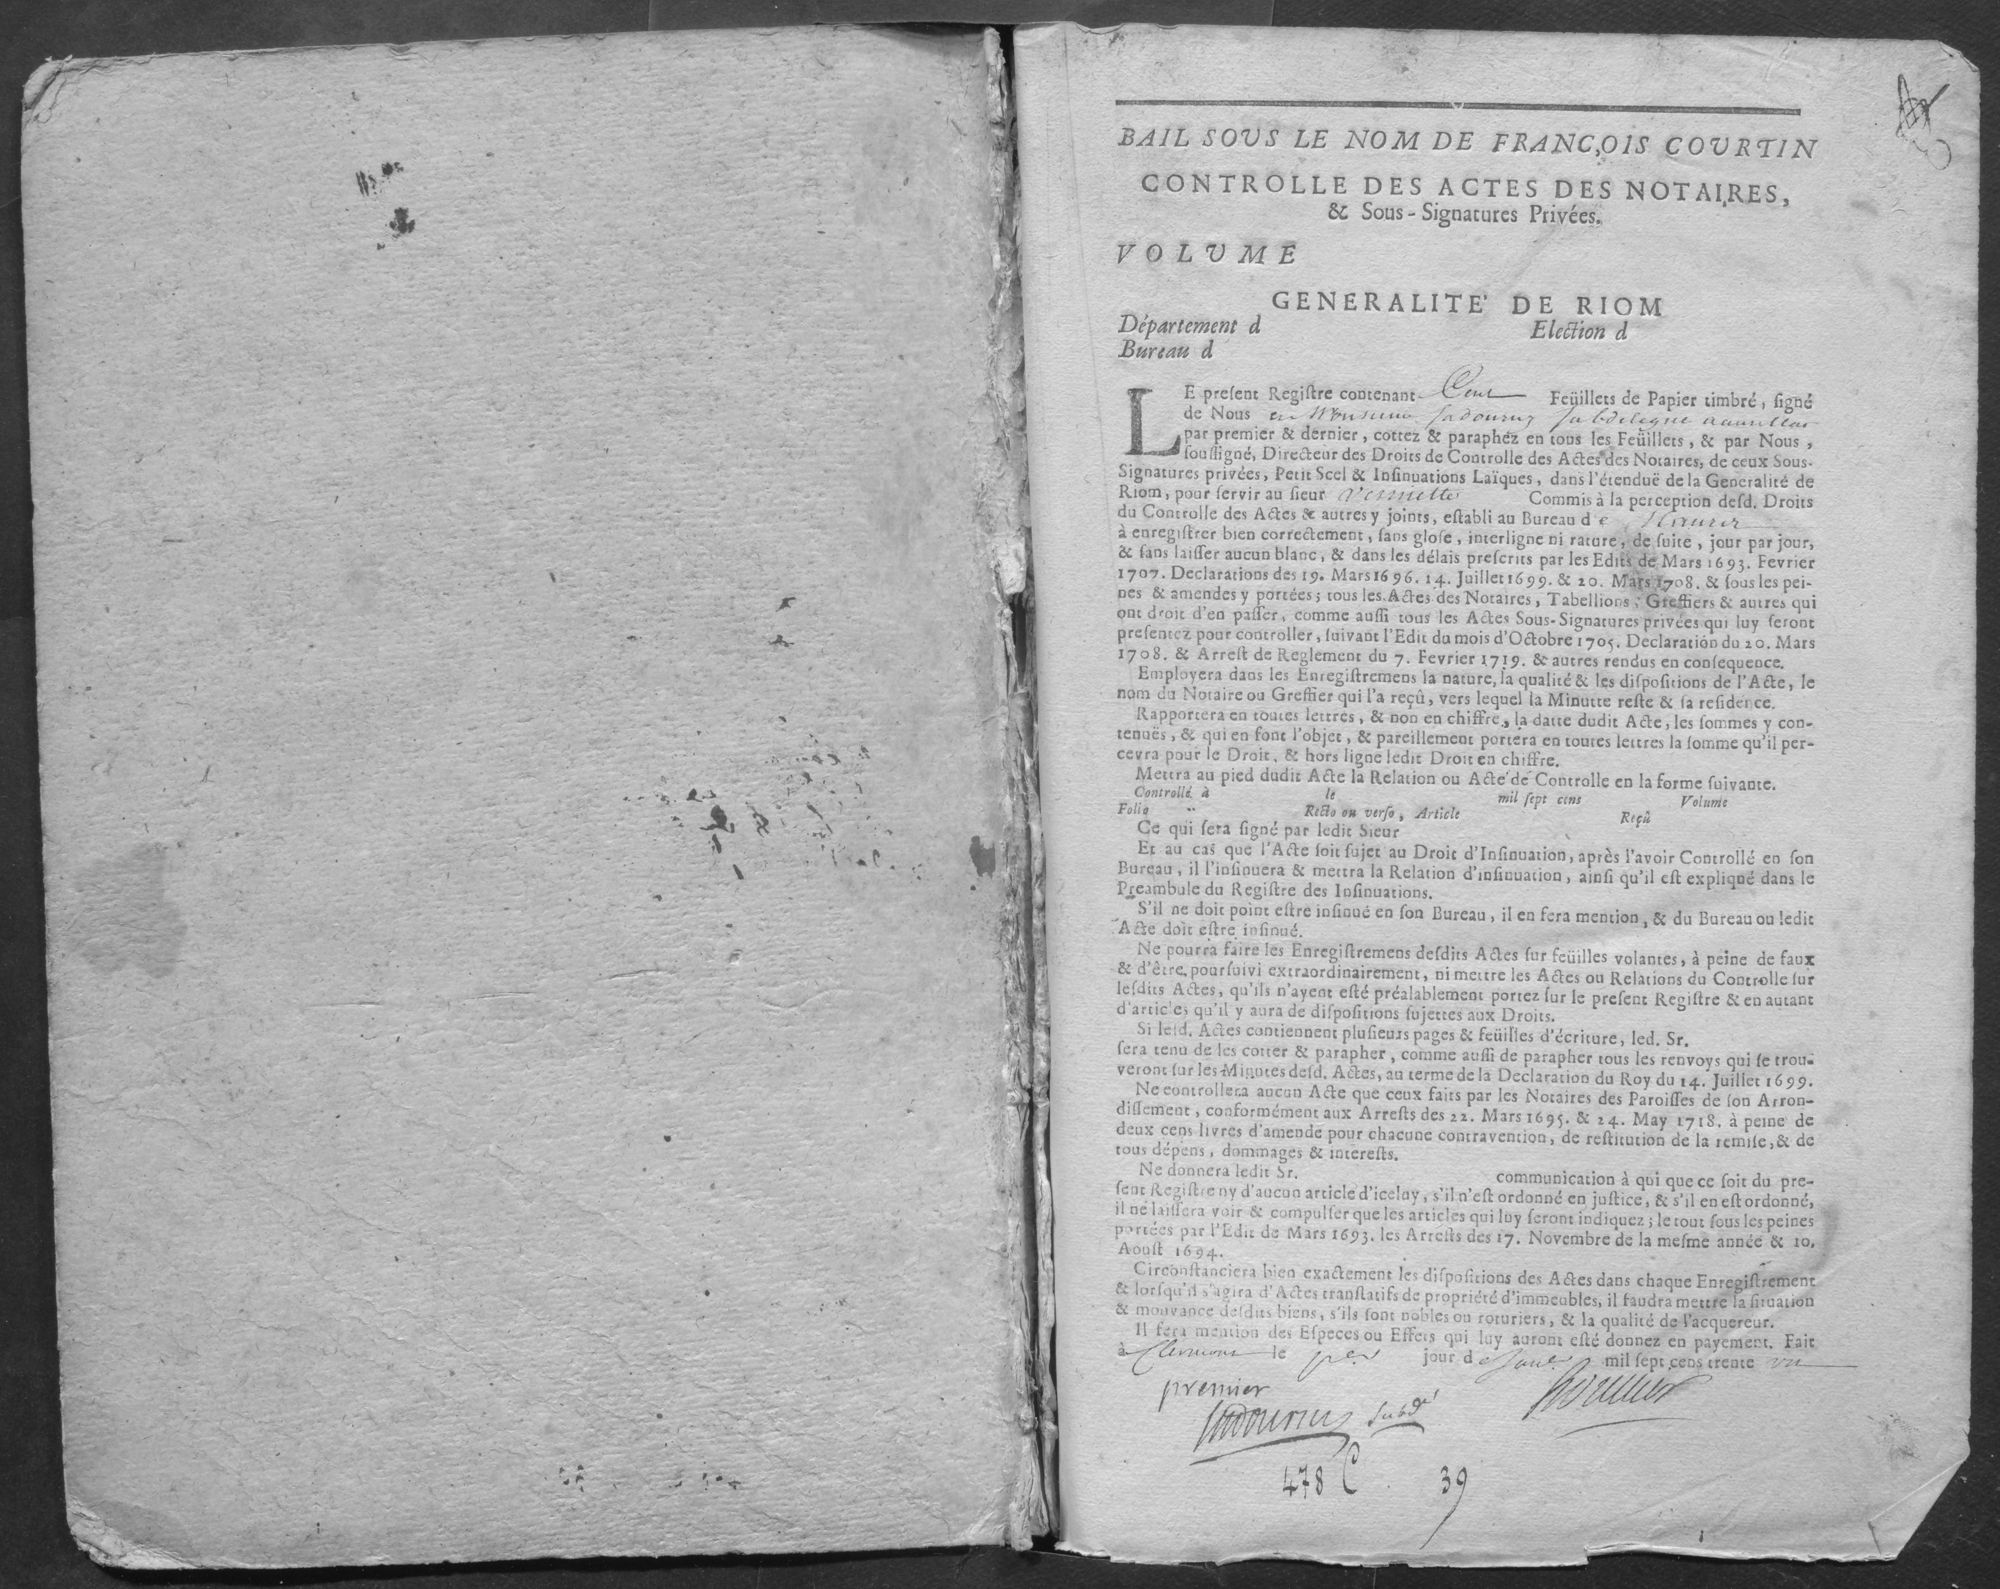 BAIL SOUS LE NOM DE FRANC,OIS COURTIN
CONTROLLE DES ACTES DES NOTAIRES,
& Sous-Signatures Privées.
VOLUME
GENERALITE' DE RIOM
Département d Election d
Bureau d
LE preſent Regiſtre contenant Cent Feüillets de Papier timbré, ſigné
de Nous subdelegué
par premier & dernier, cottez & paraphéz en tous les Feüillets, & par Nous,
ſouſſigné, Directeur des Droits de Controlle des Actes des Notaires, de ceux Sous-
Signatures privées, Petit Scel & Inſinuations Laïques, dans l'étenduë de la Generalité de
Riom, pour ſervir au ſieur Commis à la perception deſd. Droits
du Controlle des Actes & autres y joints, eſtabli au Bureau de
à enregiſtrer bien correctement, ſans gloſe, interligne ni rature, de ſuite, jour par jour,
& ſans laiſſer aucun blanc, & dans les délais preſcrits par les Edits de Mars 1693. Fevrier
1707. Declarations des 19. Mars 1696. 14. Juillet 1699. & 20. Mars 1708. & ſous les pei-
nes & amendes y portées; tous les Actes des Notaires, Tabellions, Greffiers & autres qui
ont droit d'en paſſer, comme auſſi tous les Actes Sous-Signatures privées qui luy ſeront
preſentez pour controller, ſuivant l'Edit du mois d'Octobre 1705. Declaration du 20. Mars
1708. & Arreſt de Reglement du 7. Fevrier 1719. & autres rendus en conſequence.
Employera dans les Enregiſtremens la nature, la qualité & les diſpoſitions de l'Acte, le
nom du Notaire ou Greffier qui l'a reçû, vers lequel la Minutte reſte & ſa reſidence.
Rapportera en toutes lettres, & non en chiffre, la datte dudit Acte, les ſommes y con-
tenuës, & qui en font l'objet, & pareillement portera en toutes lettres la ſomme qu'il per-
cevra pour le Droit, & hors ligne ledit Droit en chiffre.
Mettra au pied dudit Acte la Relation ou Acte de Controlle en la forme ſuivante.
Controllé à le mil ſept cens Volume
Folio Recto ou verſo, Article Reçû
Ce qui ſera ſigné par ledit Sieur
Et au cas que l'Acte ſoit ſujet au Droit d'Inſinuation, après l'avoir Controllé en ſon
Bureau, il l'inſinuera & mettra la Relation d'inſinuation, ainſi qu'il eſt expliqué dans le
Preambule du Regiſtre des Inſinuations.
S'il ne doit point eſtre inſinué en ſon Bureau, il en ſera mention, & du Bureau ou ledit
Acte doit eſtre inſinué.
Ne pourra faire les Enregiſtremens deſdits Actes ſur feüilles volantes, à peine de faux
& d'être pourſuivi extraordinairement, ni mettre les Actes ou Relations du Controlle ſur
leſdits Actes, qu'ils n'ayent eſté préalablement portez ſur le preſent Regiſtre & en autant
d'articles qu'il y aura de diſpoſitions ſujettes aux Droits.
Si leſd. Actes contiennent pluſieurs pages & feüilles d'écriture, led. Sr.
ſera tenu de les cotter & parapher, comme auſſi de parapher tous les renvoys qui ſe trou-
veront ſur les Minutes deſd. Actes, au terme de la Declaration du Roy du 14. Juillet 1699.
Ne controllera aucun Acte que ceux faits par les Notaires des Paroiſſes de ſon Arron-
diſſement, conformément aux Arreſts des 22. Mars 1695. & 24. May 1718. à peine de
deux cens livres d'amende pour chacune contravention, de reſtitution de la remiſe, & de
tous dépens, dommages & intereſts.
Ne donnera ledit Sr. communication à qui que ce ſoit du pre-
ſent Regiſtre ny d'aucun article d'iceluy, s'il n'eſt ordonné en juſtice, & s'il en eſt ordonné,
il ne laiſſera voir & compulſer que les articles qui luy ſeront indiquez; le tout ſous les peines
portées par l'Edit de Mars 1693. les Arreſts des 17. Novembre de la meſme année & 10.
Aouſt 1694.
Circonſtanciera bien exactement les diſpoſitions des Actes dans chaque Enregiſtrement
& lorſqu'il s'agira d'Actes tranſlatifs de propriété d'immeubles, il faudra mettre la ſituation
& mouvance deſdits biens, s'ils ſont nobles ou roturiers, & la qualité de l'acquereur.
Il fera mention des Eſpeces ou Effets qui luy auront eſté donnez en payement. Fait
à Clermont le per jour de Janer mil ſept cens trente un
premier
subdé
478 C 39